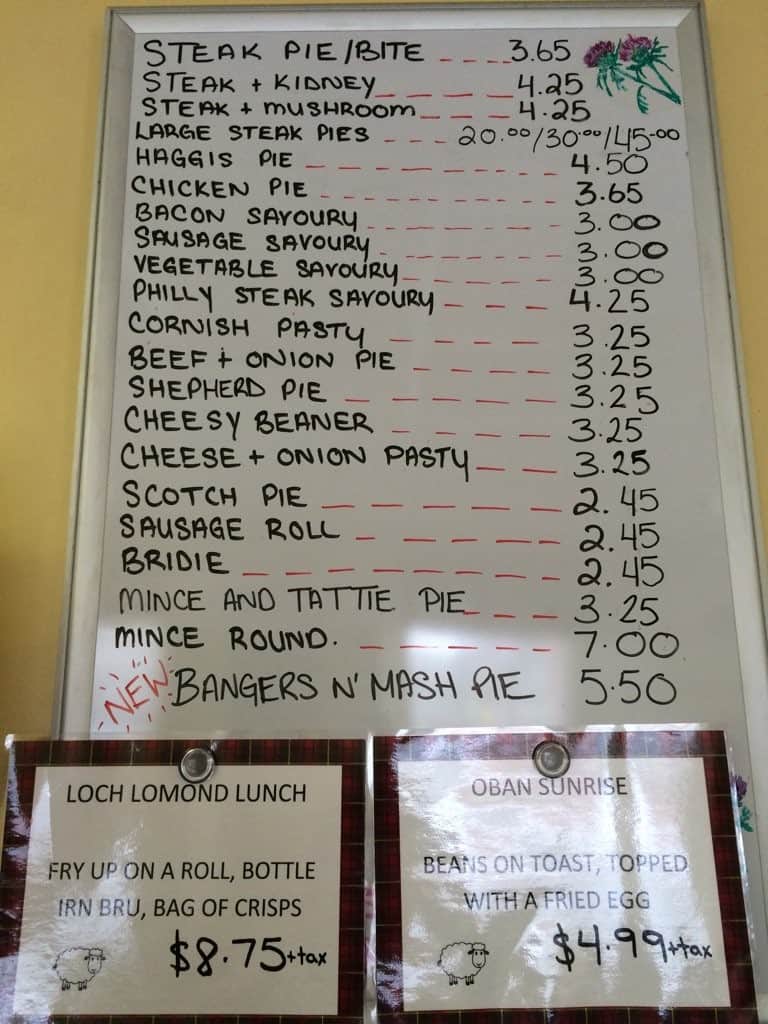 STEAK PIE/BITE ---- 3.65
STEAK + KIDNEY ------ 4.25
STEAK + MUSHROOM ---- 4.25
LARGE STEAK PIES --- 20.00/30.00/45.00
HAGGIS PIE -------- 4.50
CHICKEN PIE -------- 3.65
BACON SAVOURY ------- 3.00
SAUSAGE SAVOURY ------- 3.00
VEGETABLE SAVOURY ------ 3.00
PHILLY STEAK SAVOURY ---- 4.25
CORNISH PASTY ----- 3.25
BEEF + ONION PIE ----- 3.25
SHEPHERD PIE ------ 3.25
CHEESY BEANER ----- 3.25
CHEESE + ONION PASTY --- 3.25
SCOTCH PIE ------- 2.45
SAUSAGE ROLL ------ 2.45
BRIDIE --------- 2.45
MINCE AND TATTIE PIE ---- 3.25
MINCE ROUND. ------ 7.00
NEW BANGERS N' MASH PIE 5.50
LOCH LOMOND LUNCH
FRY UP ON A ROLL, BOTTLE
IRN BRU, BAG OF CRISPS
$8.75+tax
OBAN SUNRISE
BEANS ON TOAST, TOPPED
WITH A FRIED EGG
$4.99+tax